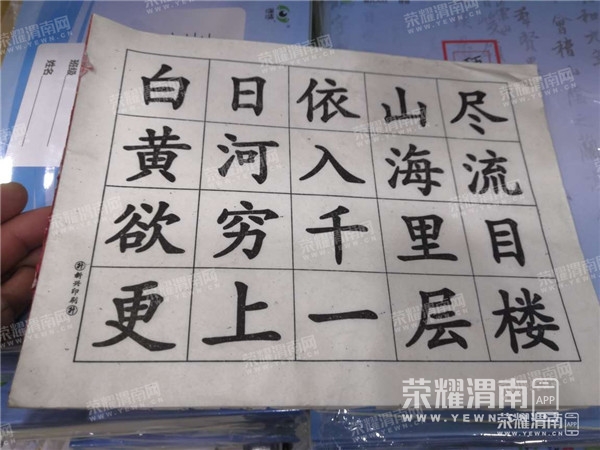 班级
姓名
白日依山尽
黄河入海流
欲穷千里目
更上一层楼
新兴印刷
荣耀渭南网
WWW.YEWN.CN
荣耀渭南
APP
WWW.YEWN.CN